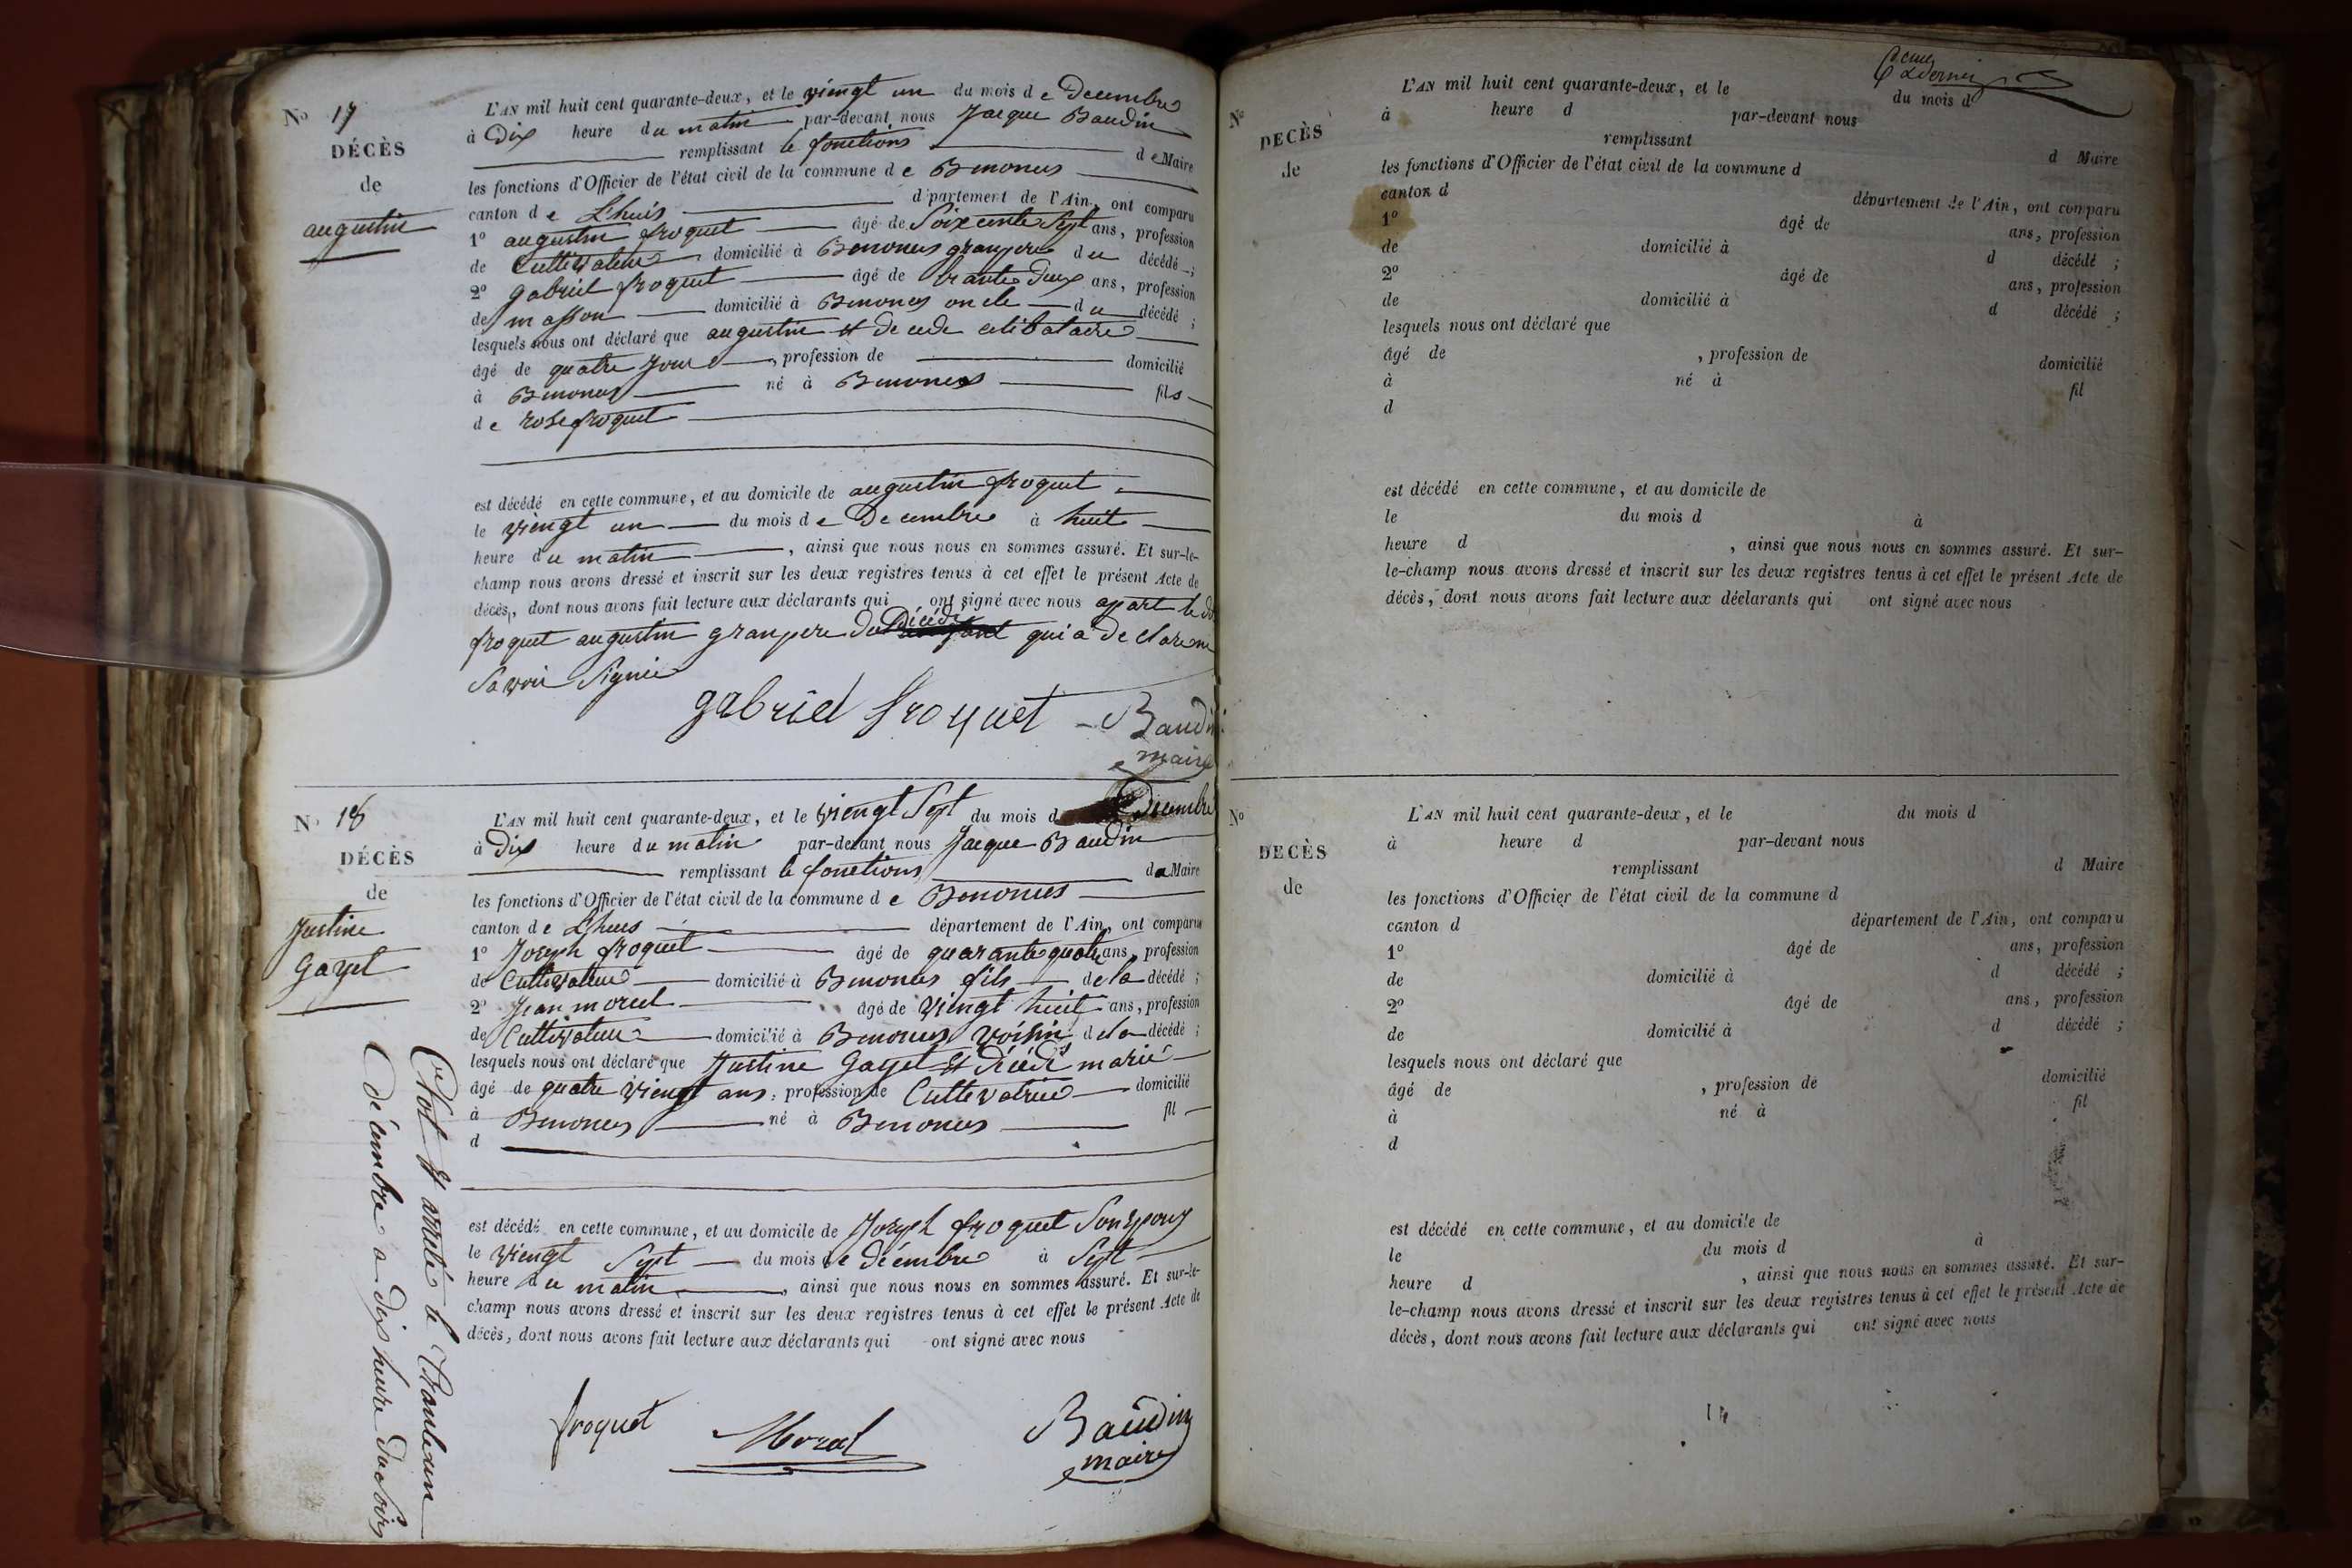 No 17
DÉCÈS
de
augustin
L'AN mil huit cent quarante-deux, et le viengt un du mois de Decembre
à Dix heure du matin par-devant nous Jacque Baudin
remplissant le fonctions de Maire
les fonctions d'Officier de l'état civil de la commune de Benonces
canton de Lhuis département de l'Ain, ont comparu
1° augustin froquet âgé de Soixente Sept ans, profession
de Cultivateur domicilié à Benonces granpere du décédé ;
2° gabriel froquet âgé de trante Deux ans, profession
de masson domicilié à Benonces oncle du décédé ;
lesquels nous ont déclaré que augustin et decede celibataire
âgé de quatre Jour, profession de domicilié
à Benonces né à Benonces fils
de rose froquet
est décédé en cette commune, et au domicile de augustin froquet
le viengt un du mois de Decembre à huit
heure du matin, ainsi que nous nous en sommes assuré. Et sur-le-
champ nous avons dressé et inscrit sur les deux registres tenus à cet effet le présent Acte de
décès, dont nous avons fait lecture aux déclarants qui ont signé avec nous apart le dit
froquet augustin granpere du Décédé qui a declare ne
Savoir Signie
gabriel froquet Baudin
maire
No 18
DÉCÈS
de
Justine
Gayet
L'AN mil huit cent quarante-deux, et le viengt Sept du mois d Decembre
à Dix heure du matin par-devant nous Jacque Baudin
remplissant le fonctions de Maire
les fonctions d'Officier de l'état civil de la commune de Benonces
canton de Lhuis département de l'Ain, ont comparu
1° Joseph froquet âgé de quarante quatre ans, profession
de Cultivateur domicilié à Benonces fils de la décédé ;
2° Jean morel âgé de viengt huit ans, profession
de Cultivateur domicilié à Benonces voisin de la décédé ;
lesquels nous ont déclaré que Justine Gayet et décédé marié
âgé de quatre viengt ans, profession de Cultivatrice domicilié
à Benonces né à Benonces fil
d
est décédé en cette commune, et au domicile de Joseph froquet Son epoux
le viengt Sept du mois de décembre à Sept
heure du matin, ainsi que nous nous en sommes assuré. Et sur-le-
champ nous avons dressé et inscrit sur les deux registres tenus à cet effet le présent Acte de
décès, dont nous avons fait lecture aux déclarants qui ont signé avec nous
froquet Morel Baudin
maire
Clot et arreté le Trante un
décembre a Dix heure du soir
L'AN mil huit cent quarante-deux, et le du mois d
No
DECÈS
de
à heure d par-devant nous
remplissant d Maire
les fonctions d'Officier de l'état civil de la commune d
canton d département de l'Ain, ont comparu
1° âgé de ans, profession
de domicilié à d décédé ;
2° âgé de ans, profession
de domicilié à d décédé ;
lesquels nous ont déclaré que
âgé de , profession de domicilié
à né à fil
d
est décédé en cette commune, et au domicile de
le du mois d à
heure d , ainsi que nous nous en sommes assuré. Et sur-
le-champ nous avons dressé et inscrit sur les deux registres tenus à cet effet le présent Acte de
décès, dont nous avons fait lecture aux déclarants qui ont signé avec nous
No
DECÈS
de
L'AN mil huit cent quarante-deux, et le du mois d
à heure d par-devant nous
remplissant d Maire
les fonctions d'Officier de l'état civil de la commune d
canton d département de l'Ain, ont comparu
1° âgé de ans, profession
de domicilié à d décédé ;
2° âgé de ans, profession
de domicilié à d décédé ;
lesquels nous ont déclaré que
âgé de , profession de domicilié
à né à fil
d
est décédé en cette commune, et au domicile de
le du mois d à
heure d , ainsi que nous nous en sommes assuré. Et sur-
le-champ nous avons dressé et inscrit sur les deux registres tenus à cet effet le présent Acte de
décès, dont nous avons fait lecture aux déclarants qui ont signé avec nous